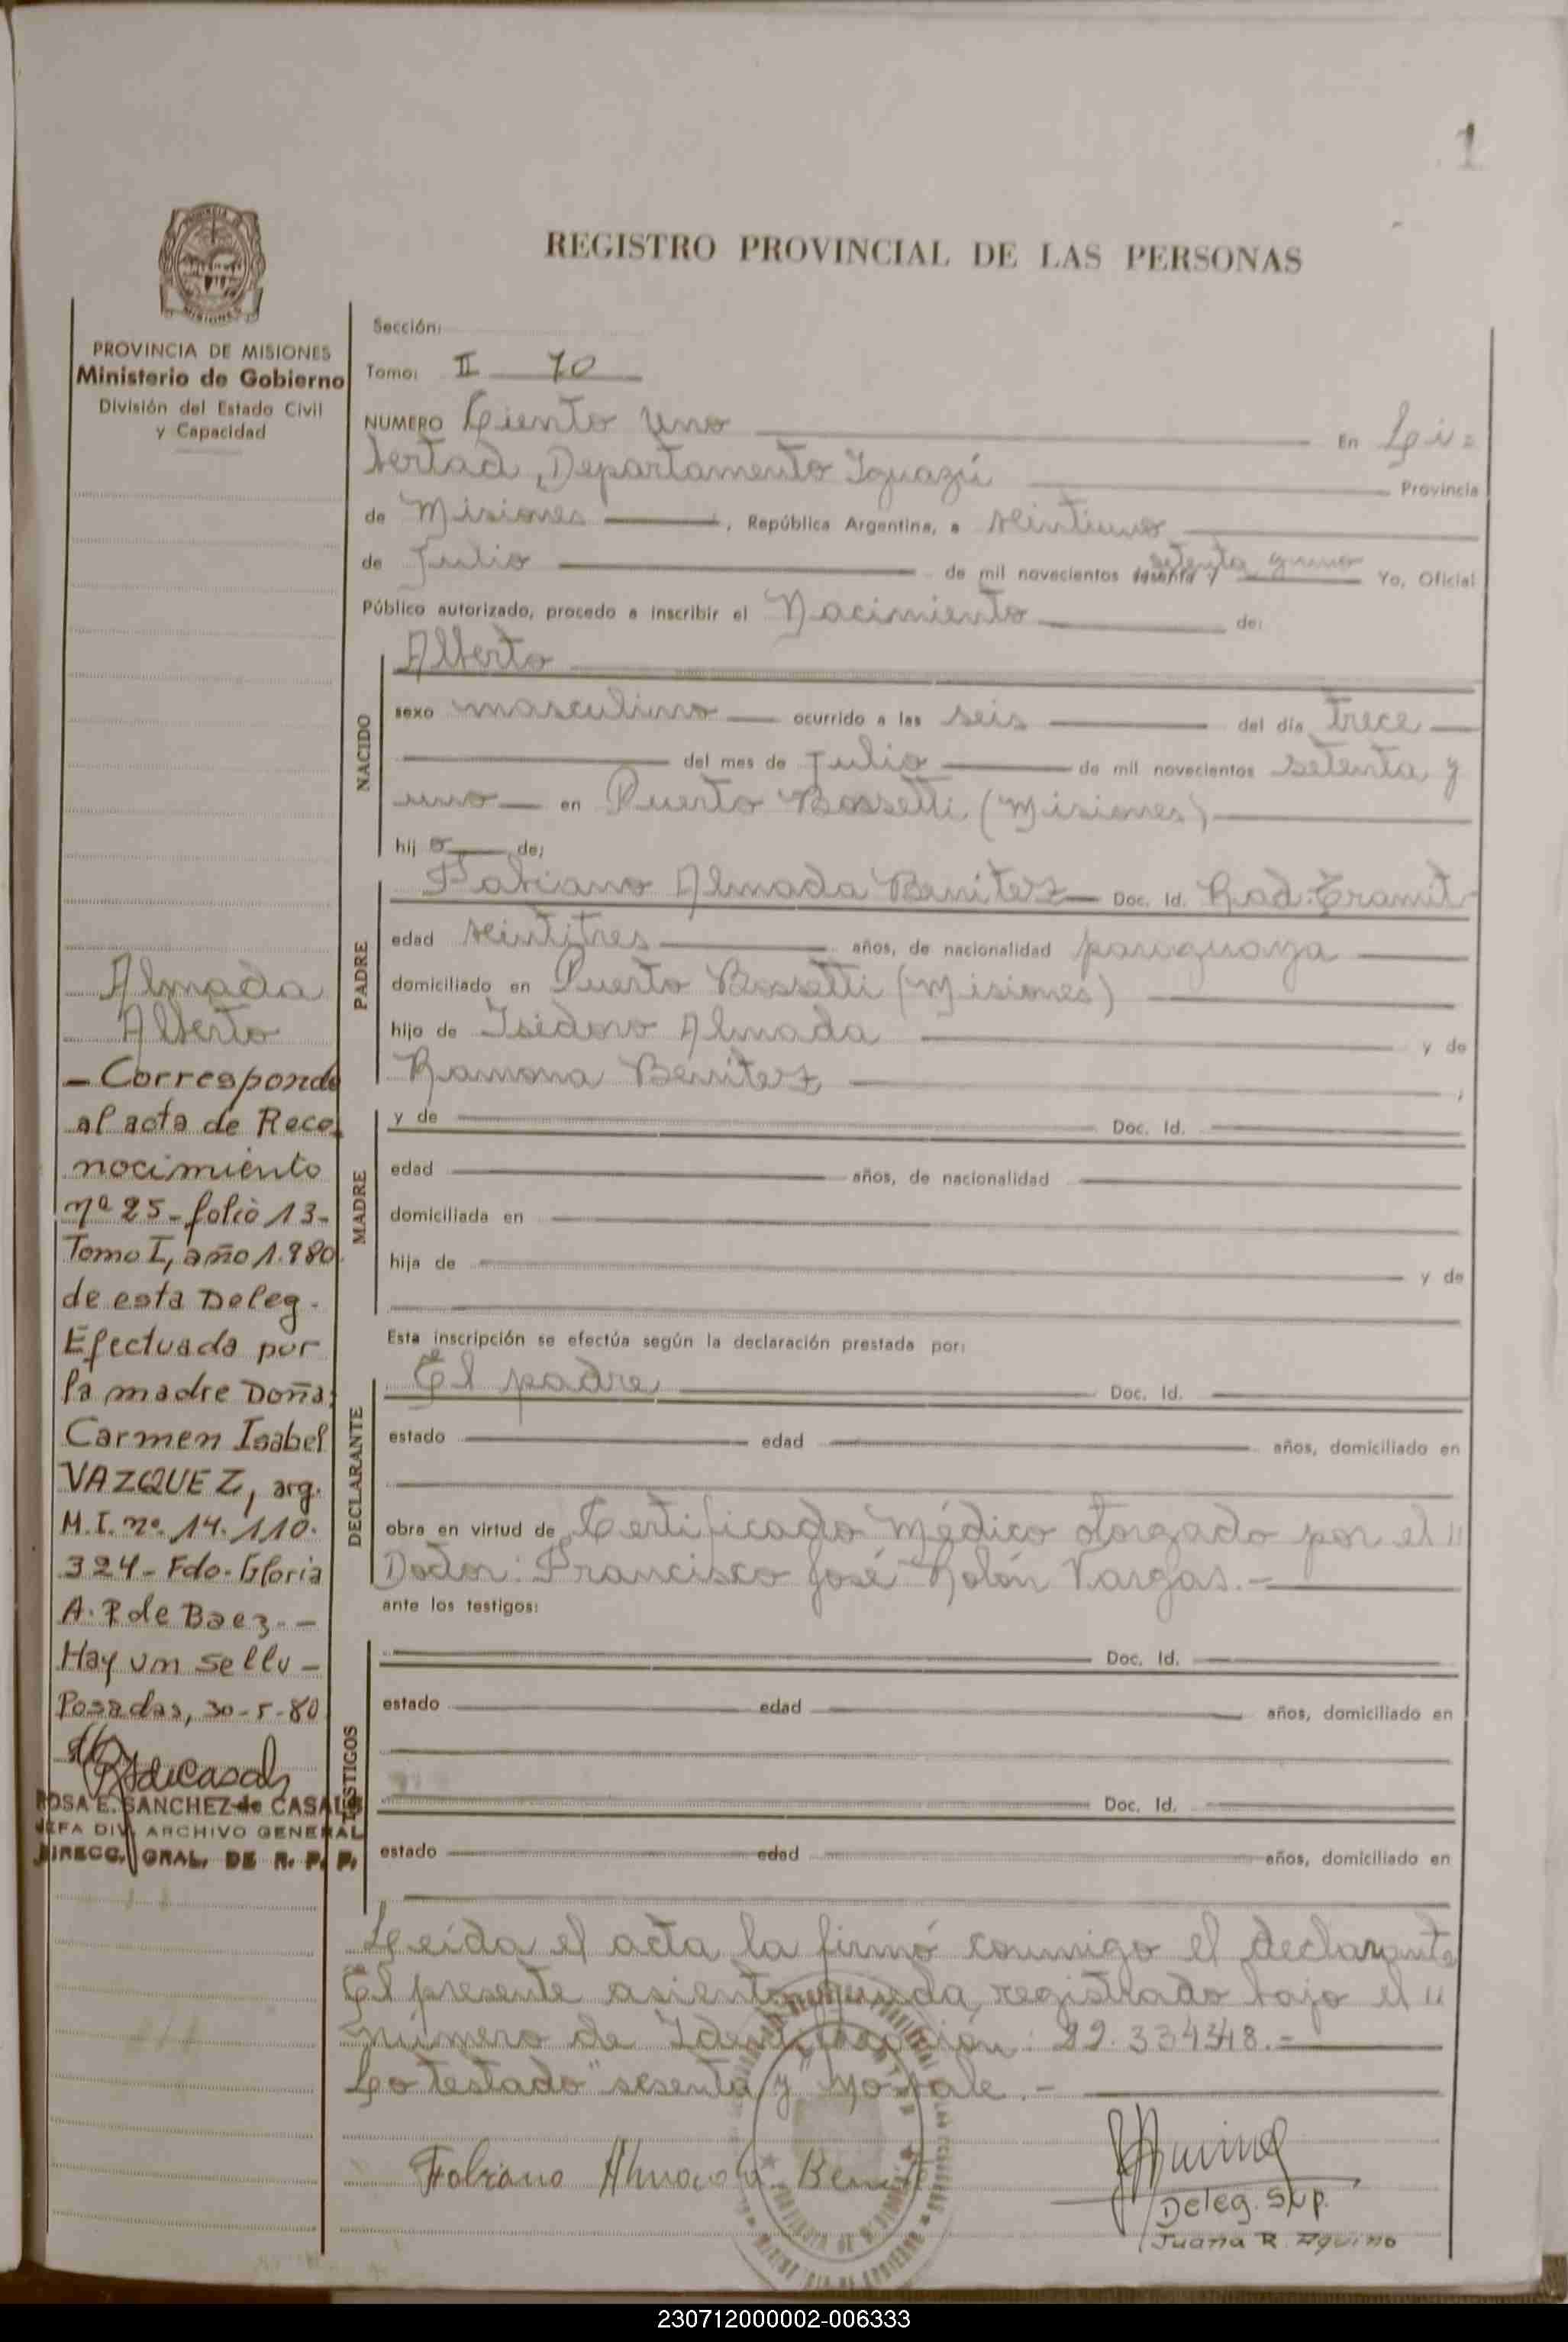 1
REGISTRO PROVINCIAL DE LAS PERSONAS
PROVINCIA DE MISIONES
Ministerio de Gobierno
División del Estado Civil
y Capacidad
Almada
Alberto
- Corresponde
al acta de Reco
nocimiento
nº 25 - folio 13 -
Tomo I, año 1.980
de esta Deleg.
Efectuada por
la madre Doña
Carmen Isabel
VAZQUEZ, arg.
M.I. nº. 14.110.
324 - Fdo. Gloria
A. P. de Baez. -
Hay un sello -
Posadas, 30-5-80
ROSA E. SANCHEZ de CASALS
JEFA DIV. ARCHIVO GENERAL
DIRECC. GRAL. DE R. P. P.
Sección:
Tomo: II 70
NUMERO Ciento uno En Li=
bertad, Departamento Iguazú Provincia
de Misiones, República Argentina, a veintiuno
de Julio de mil novecientos sesenta y setenta y uno Yo, Oficial
Público autorizado, procedo a inscribir el Nacimiento de:
NACIDO
Alberto
sexo masculino ocurrido a las seis del día trece
del mes de Julio de mil novecientos setenta y
uno en Puerto Bossetti (Misiones)
hijo de;
PADRE
Fabiano Almada Benitez Doc. Id. Rad. Tramit
edad veintitres años, de nacionalidad paraguaya
domiciliado en Puerto Bossetti (Misiones)
hijo de Isidoro Almada y de
Ramona Benitez ,
MADRE
y de Doc. Id.
edad años, de nacionalidad
domiciliada en
hija de y de
Esta inscripción se efectúa según la declaración prestada por:
DECLARANTE
El padre Doc. Id.
estado edad años, domiciliado en
obra en virtud de Certificado Médico otorgado por el "
Doctor: Francisco José Rolón Vargas. -
ante los testigos:
TESTIGOS
Doc. Id.
estado edad años, domiciliado en
Doc. Id.
estado edad años, domiciliado en
Leída el acta la firmó conmigo el declarante
El presente asiento queda registrado bajo el "
número de Identificación: 22.334348. =
Lo testado "sesenta y" no vale. -
Fabiano Almada Beni
Deleg. Sup.
Juana R. Aquino
230712000002-006333